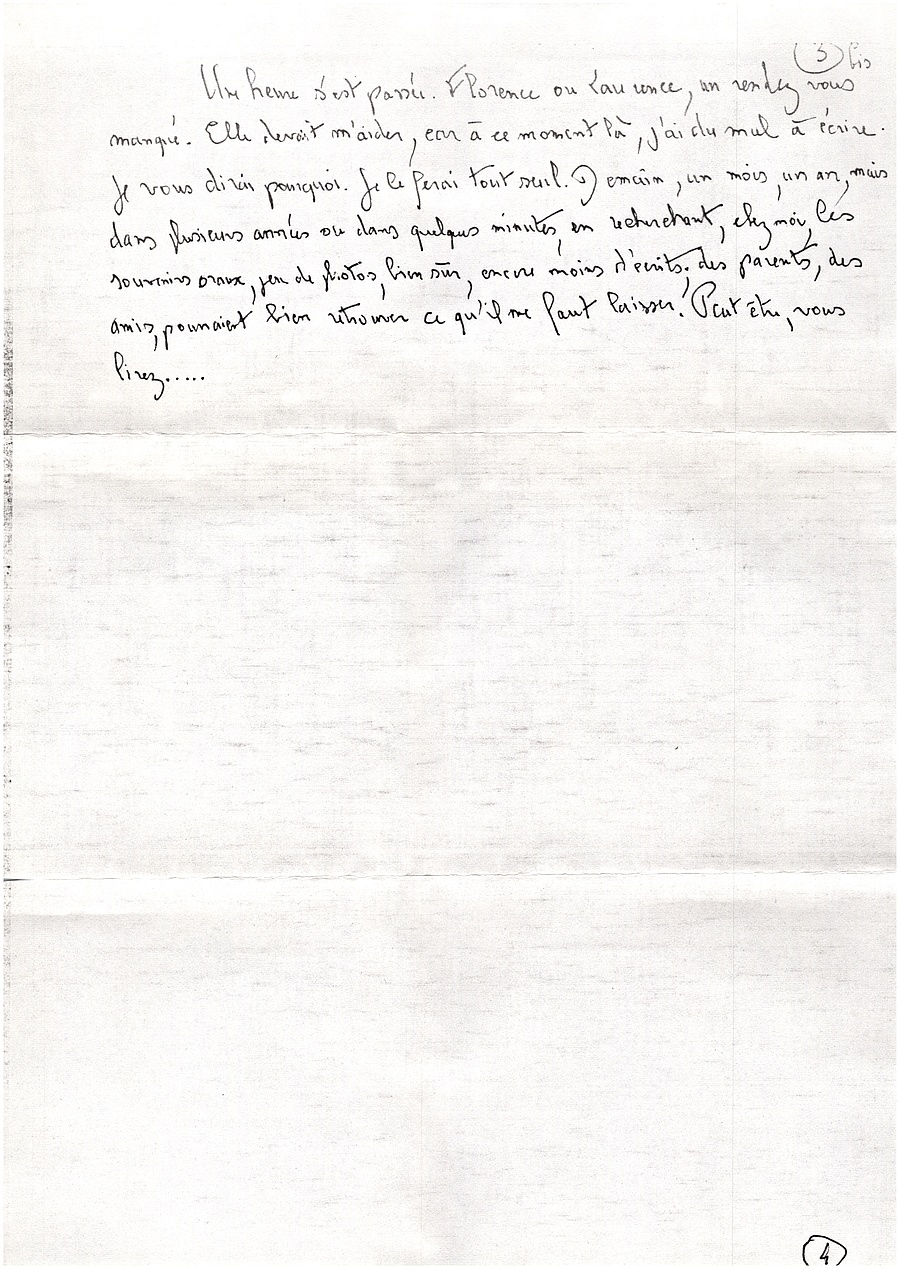 3 bis
Une heure s'est passée. Florence ou Laurence, un rendez vous
manqué. Elle devait m'aider, car à ce moment là, j'ai du mal à écrire.
Je vous dirai pourquoi. Je le ferai tout seul. Demain, un mois, un an, mais
dans plusieurs années ou dans quelques minutes, en recherchant, chez moi, les
souvenirs oraux, peu de photos, bien sûr, encore moins d'écrits. des parents, des
amis, pourraient bien retrouver ce qu'il me faut laisser! Peut être, vous
lirez.....
4